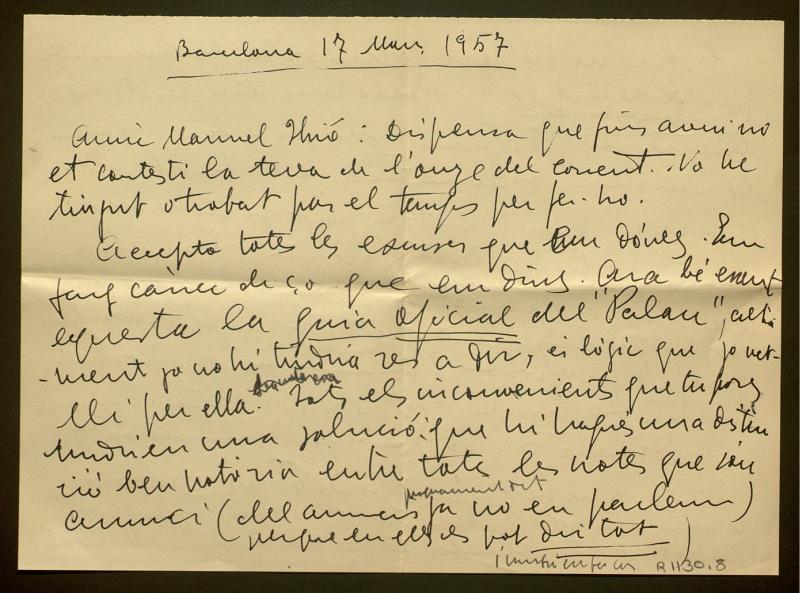 Barcelona 17 Març 1957
Amic Manuel : Dispensa que fins avui no
et contesti la teva de l'onze del corrent. No he
tingut o trobat pas el temps per fer-ho.
Accepto totes les excuses que em dónes. Em
faig càrrec de ço que em dius. Ara bé essent
aquesta la guia oficial del "Palau",
-ment jo no hi tindria res a dir, és lògic que jo vet-
lli per ella. Tots els inconvenients que tu poses
tindrien una solució: que hi hagués una distin
ció ben notòria entre totes les notes que són
pròpiament dit
anunci (del anuncis ja no en parlem)
perque en ells es pot dir tot )
R.1130.8